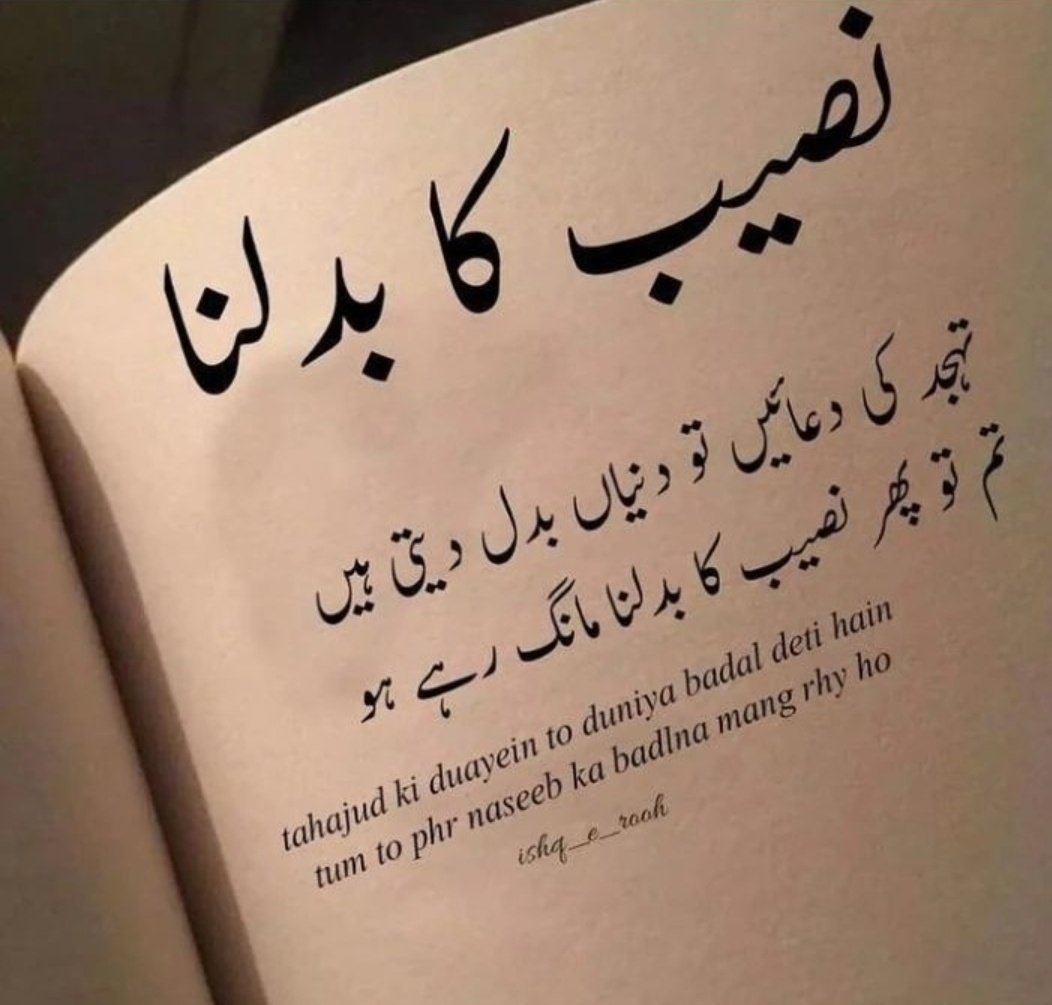 نصیب کا بدلنا
تہجد کی دعائیں تو دنیاں بدل دیتی ہیں
تم تو پھر نصیب کا بدلنا مانگ رہے ہو
tahajud ki duayein to duniya badal deti hain
tum to phr naseeb ka badlna mang rhy ho
ishq_e_rooh